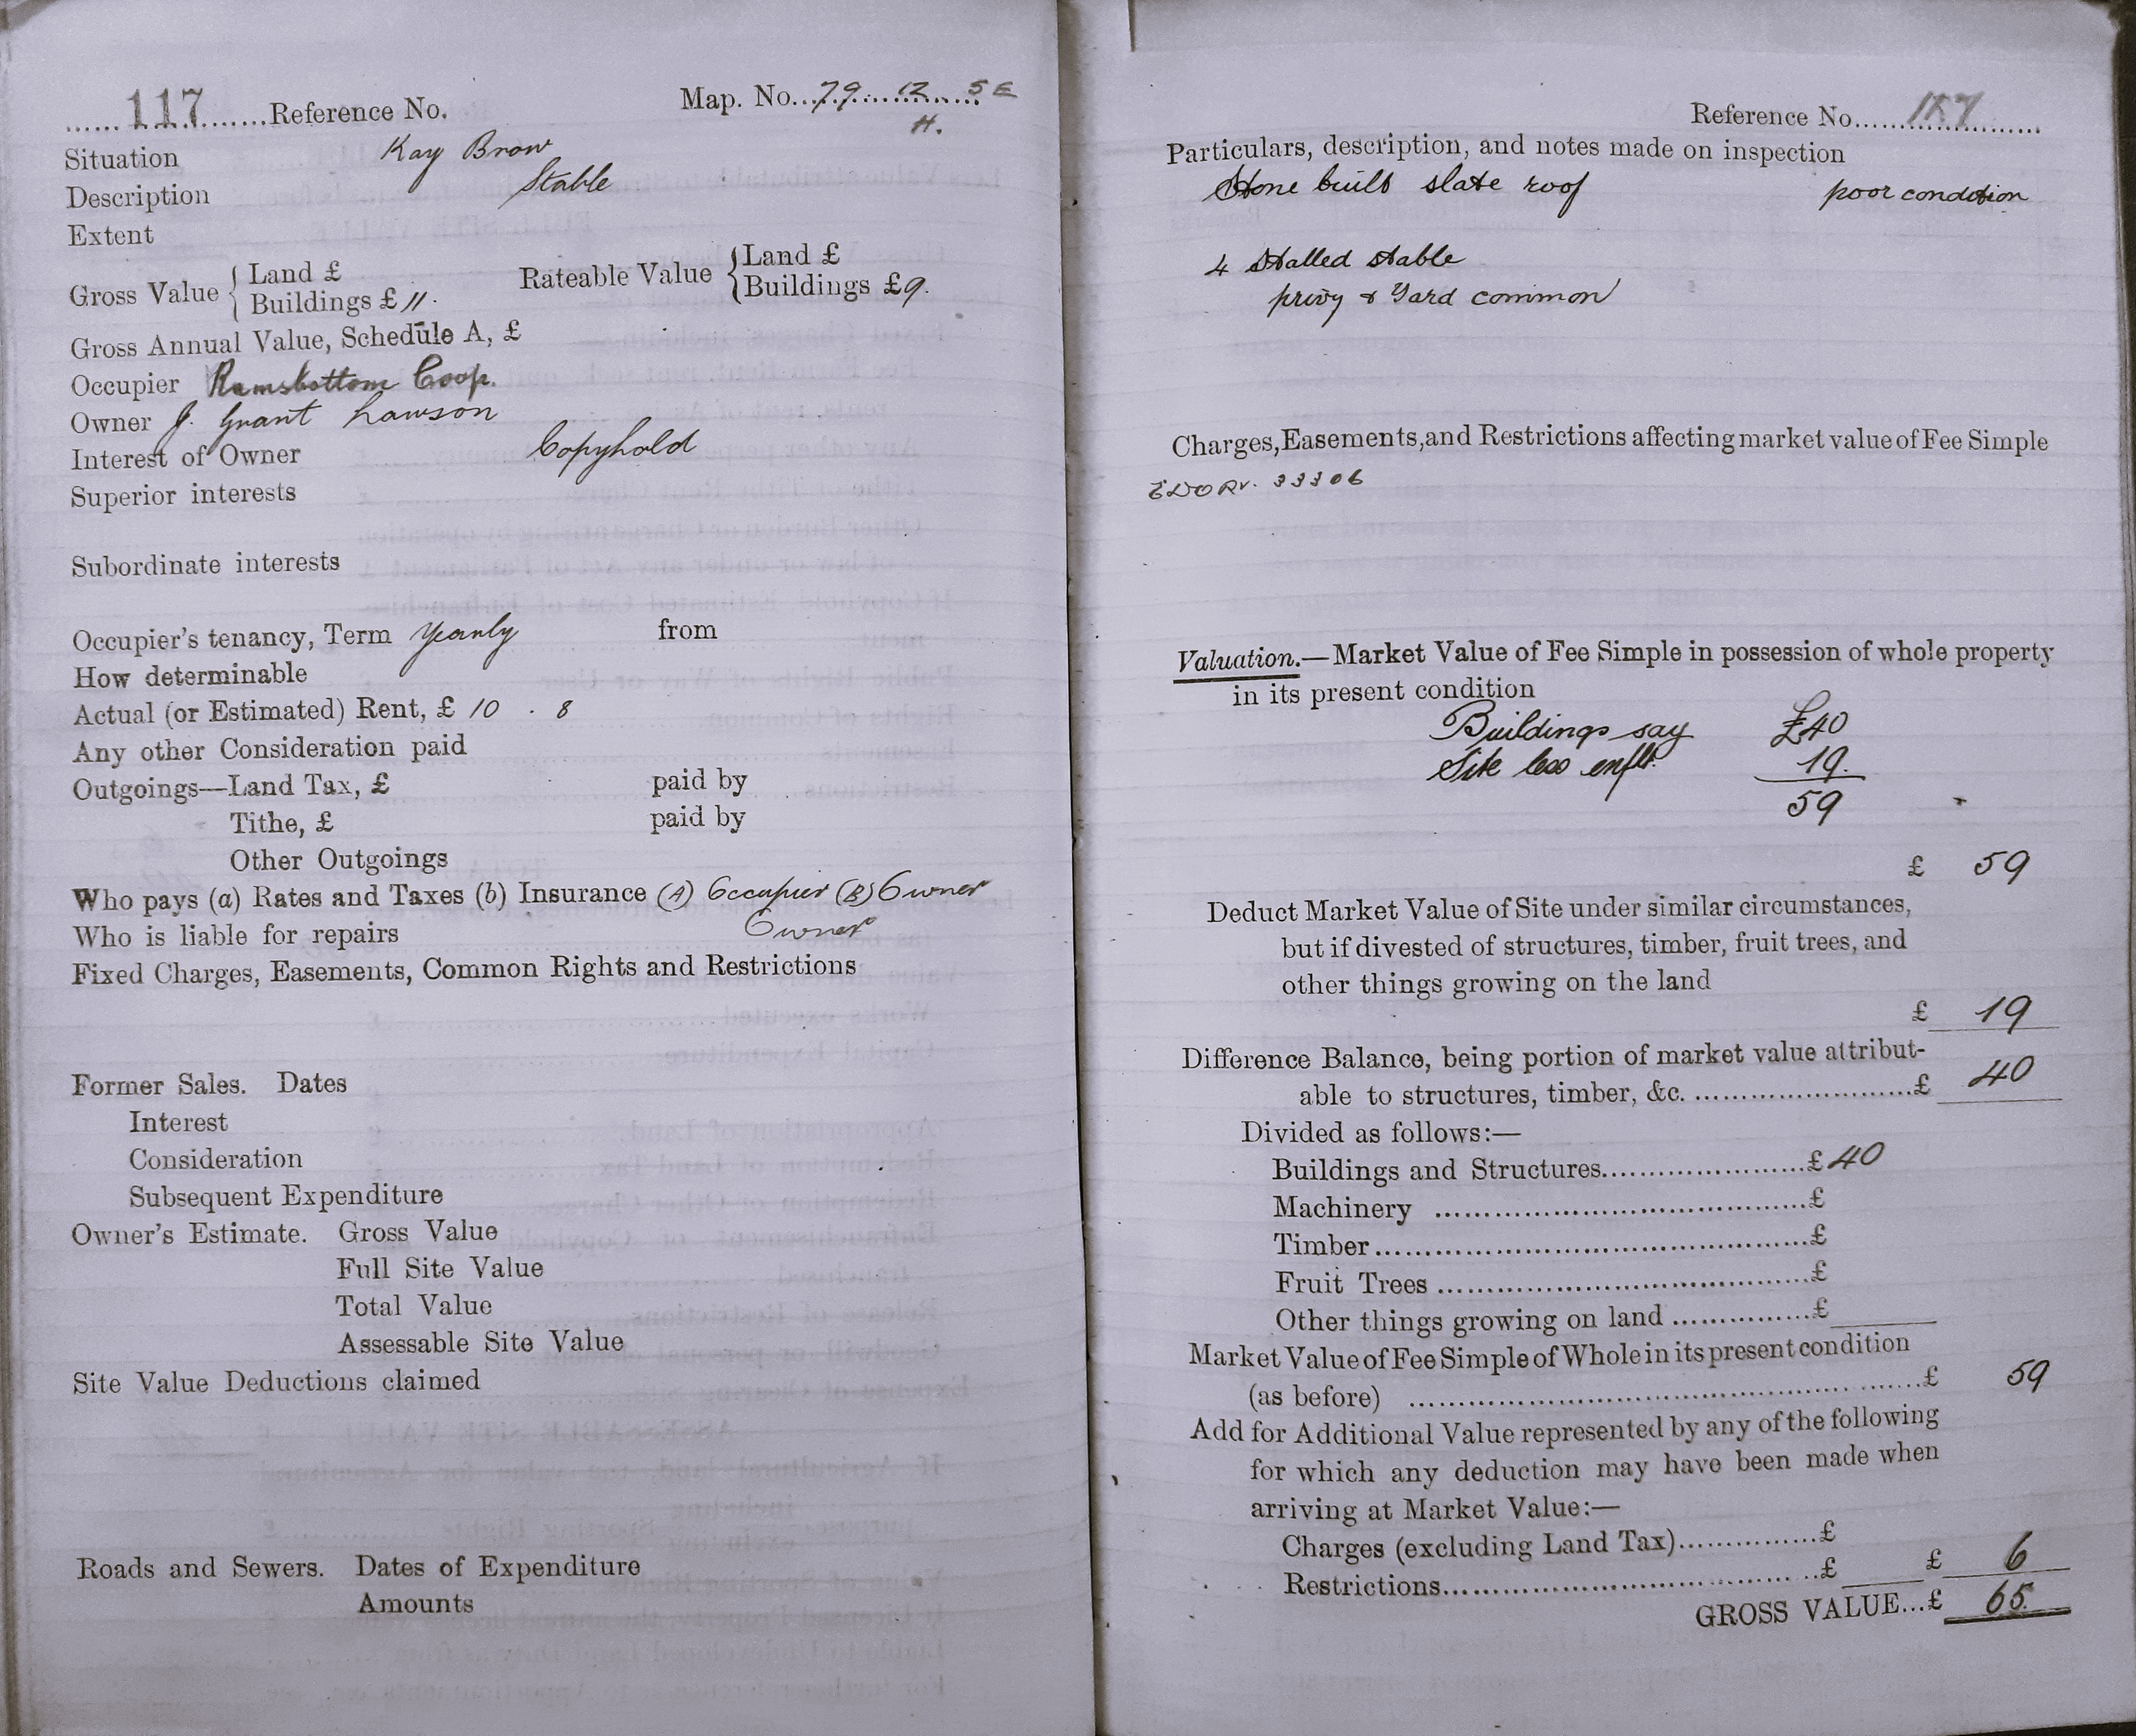 117 Reference No. Map. No. 79 12 5 E
H.
Situation Kay Brow
Description Stable
Extent
Gross Value { Land £
Buildings £ 11. Rateable Value { Land £
Buildings £ 9.
Gross Annual Value, Schedule A, £
Occupier Ramsbottom Coop.
Owner J. Grant Lawson
Interest of Owner Copyhold
Superior interests
Subordinate interests
Occupier's tenancy, Term Yearly from
How determinable
Actual (or Estimated) Rent, £ 10 . 8
Any other Consideration paid
Outgoings—Land Tax, £ paid by
Tithe, £ paid by
Other Outgoings
Who pays (a) Rates and Taxes (b) Insurance (A) Occupier (B) Owner
Who is liable for repairs Owner
Fixed Charges, Easements, Common Rights and Restrictions
Former Sales. Dates
Interest
Consideration
Subsequent Expenditure
Owner's Estimate. Gross Value
Full Site Value
Total Value
Assessable Site Value
Site Value Deductions claimed
Roads and Sewers. Dates of Expenditure
Amounts
Reference No. 117
Particulars, description, and notes made on inspection
Stone built slate roof poor condition
4 Stalled stable
privy & Yard common
Charges, Easements, and Restrictions affecting market value of Fee Simple
33306
Valuation.—Market Value of Fee Simple in possession of whole property
in its present condition
Buildings say £40
Site less enflt. 19.
59
£ 59
Deduct Market Value of Site under similar circumstances,
but if divested of structures, timber, fruit trees, and
other things growing on the land
£ 19
Difference Balance, being portion of market value attribut-
able to structures, timber, &c. £ 40
Divided as follows:—
Buildings and Structures £ 40
Machinery £
Timber £
Fruit Trees £
Other things growing on land £
Market Value of Fee Simple of Whole in its present condition
(as before) £ 59
Add for Additional Value represented by any of the following
for which any deduction may have been made when
arriving at Market Value:—
Charges (excluding Land Tax) £
Restrictions £ £ 6
GROSS VALUE...£ 65.